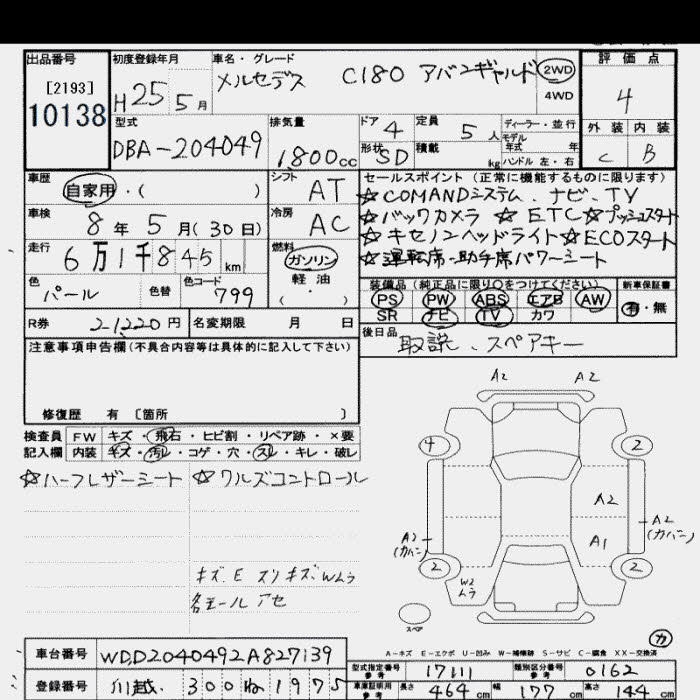 出品番号
[2193]
10138
初度登録年月
H25 5月
車名・グレード
メルセデス C180 アバンギャルド
2WD
4WD
評価点
4
外装 内装
C B
型式
DBA-204049
排気量
1800cc
ドア 4
形状 SD
定員 5人
積載 kg
ディーラー・並行
モデル
年式 年
ハンドル 左・右
車歴
自家用・( )
シフト AT
車検
8年5月(30日)
冷房 AC
走行
6万1千845km
燃料
ガソリン
軽油
( )
色
パール
色替
色コード
799
セールスポイント(正常に機能するものに限ります)
☆COMANDシステム、ナビ、TV
☆バックカメラ ☆ETC☆プッシュスタート
☆キセノンヘッドライト☆ECOスタート
☆運転席・助手席パワーシート
装備品(純正品に限り○をつけてください)
PS PW ABS エアB AW
SR ナビ TV カワ
新車保証書
有・無
R券 21,220円
名変期限 月 日
後日品
取説、スペアキー
注意事項申告欄(不具合内容等は具体的に記入して下さい)
修復歴 有 〔箇所 〕
検査員 FW キズ・飛石・ヒビ割・リペア跡・×要
記入欄 内装 キズ・汚レ・コゲ・穴・スレ・キレ・破レ
☆ハーフレザーシート ☆ワルズコントロール
キズ、E スリキズ、Wムラ
各モール アセ
A2 A2
4 2
A2
A2
(カバン)
A1
A2
(カバン)
2 2
W2
ムラ
スペア
カ
A-キズ E-エクボ U-凹み W-補修跡 S-サビ C-腐食 XX-交換済
車台番号 WDD2040492A827139
登録番号 川越 300 ね 1975
型式指定番号
参考
17111
類別区分番号
参考
0162
車庫証明用
参考
長さ 464cm 幅 177cm 高さ 144cm